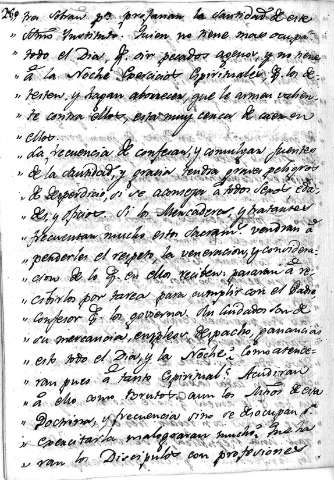 289 tra Stran ps profanan la santidad de este
" Stmo Instituto. Quien no tiene mas ocupan
" todo el Dia, q oir pecados agenos, y no tiene
" â la Noche Exercicios Espirituales q los de
" testen, y hagan aborrecer, que le armen valien
" te contra ellos, està muy cerca de caer en
" ellos.
" La frecuencia de confesar, y comulgar fuentes
" de la santidad, y gracia tendra graves peligros
" de desperdicio, si se aconseja à todos sexos eda
" des, y oficios. Si los Mercaderes, y tratantes
" frecuentan mucho estos Sacramtos vendran â
" perderles el respeto, la veneracion, y considera
" cion de lo q en ello reciben, pararan â re
" cibirlos por tarea para cumplir con el Padre
" Confesor q los govierna. Sus cuidados son de
" su mercancia, empleos, despacho, ganancias
" esto todo el Dia, y la Noche. Como atende
" ran pues â tanto Espiritual? Acudiran
" â ello como Brutos. aun los Stros de esta
" Doctrina, y frecuencia sino se desocupan pa
" exercitarla malograran mucho. Que ha
" ran los Discipulos con profesiones